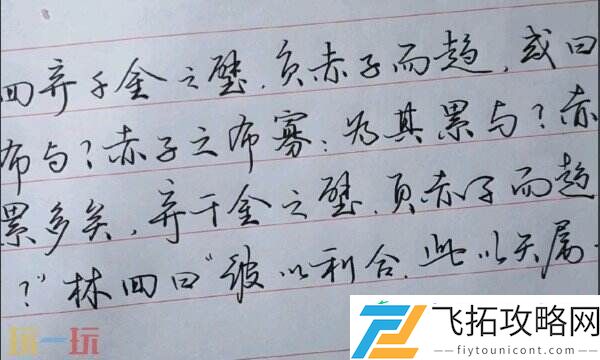 回弃千金之璧,负赤子而趋,或曰
布与?赤子之布寡;为其累与?赤
累多矣,弃千金之璧,负赤子而趋
?”林回曰“彼以利合,此以天属.
玩一玩
飞拓攻略网
feiytounicont.com